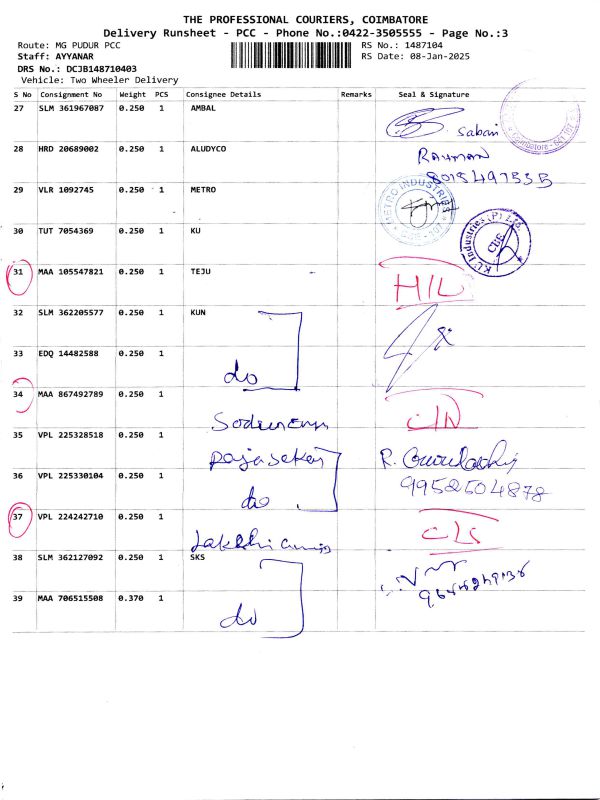 THE PROFESSIONAL COURIERS, COIMBATORE
Delivery Runsheet - PCC - Phone No.:0422-3505555 - Page No.:3
Route: MG PUDUR PCC
RS No.: 1487104
Staff: AYYANAR
RS Date: 08-Jan-2025
DRS No.: DCJB148710403
Vehicle: Two Wheeler Delivery
S No Consignment No Weight PCS Consignee Details Remarks Seal & Signature
27 SLM 361967087 0.250 1 AMBAL
Sabari
28 HRD 20689002 0.250 1 ALUDYCO
RAHMAN
8015497535
29 VLR 1092745 0.250 1 METRO
METRO INDUSTRIES
30 TUT 7054369 0.250 1 KU
K.U. Industries (P) Ltd.
CBE
31 MAA 105547821 0.250 1 TEJU
32 SLM 362205577 0.250 1 KUN
33 EDQ 14482588 0.250 1
do
34 MAA 867492789 0.250 1
35 VPL 225328518 0.250 1
Rajasekar
36 VPL 225330104 0.250 1
do
9952504878
37 VPL 224242710 0.250 1
38 SLM 362127092 0.250 1 SKS
39 MAA 706515508 0.370 1
do